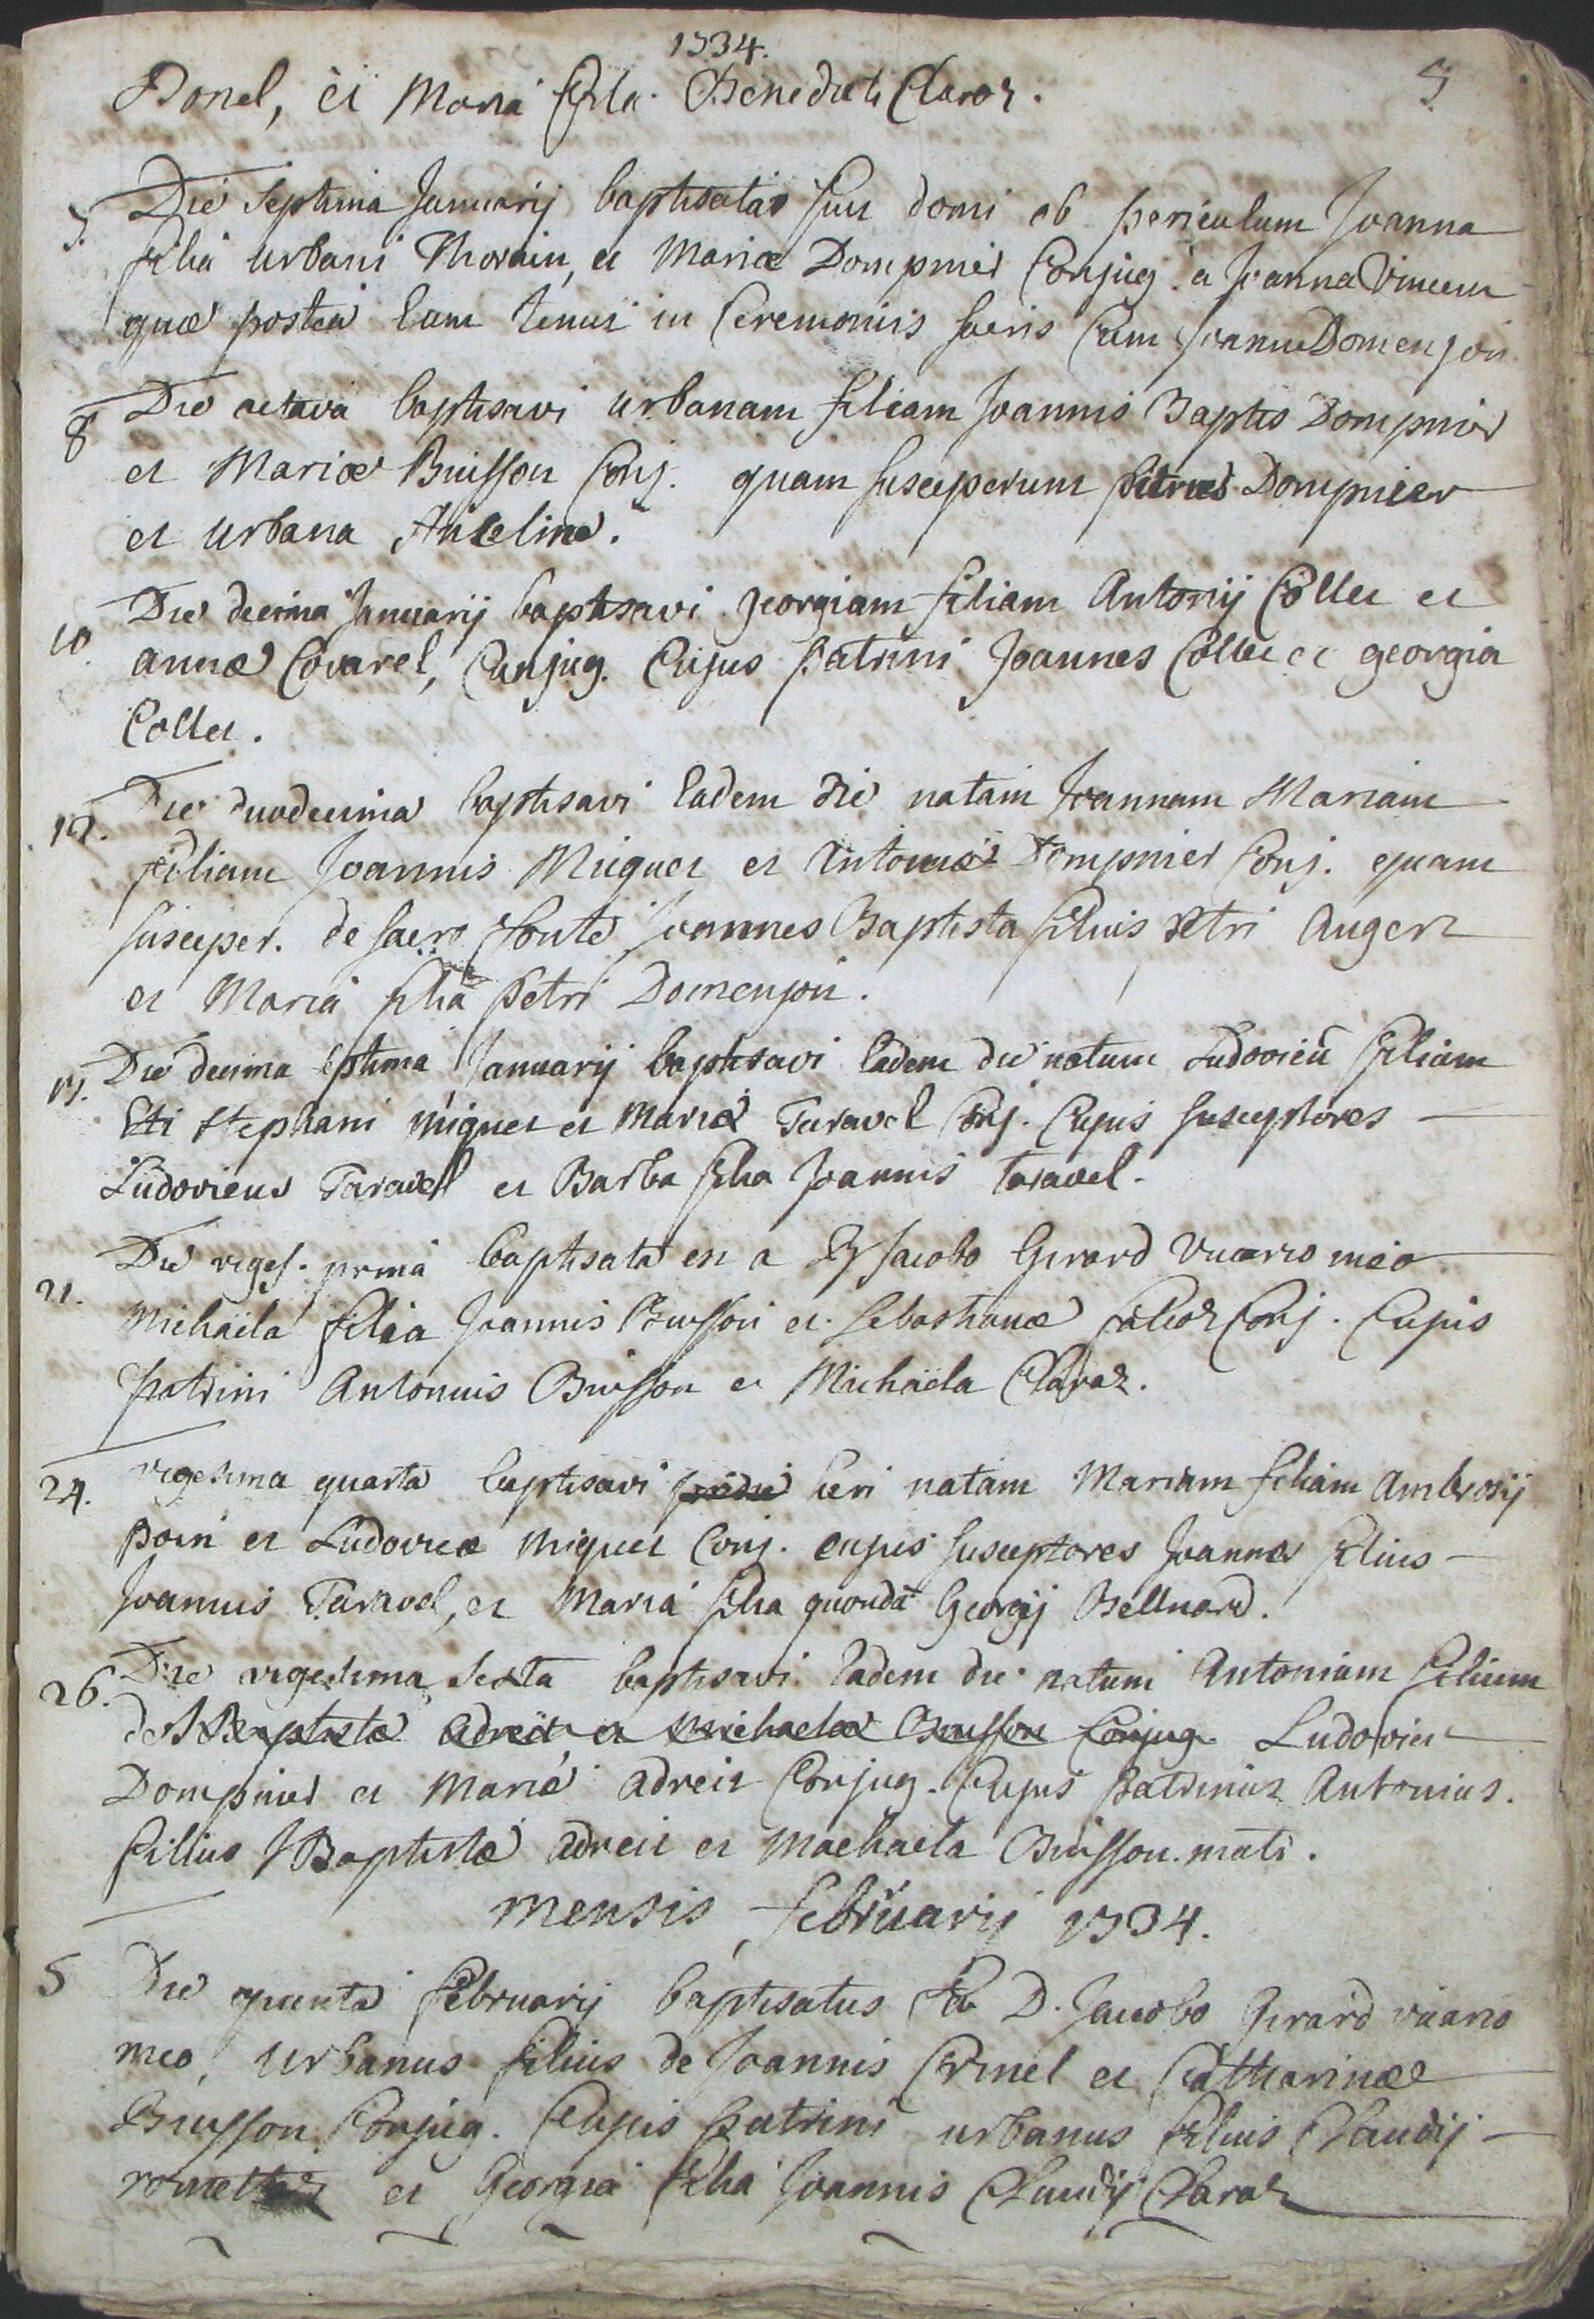 1734.
Bonel, et Maria filia Benedicti Claraz.
7.
7. Die septima Januarij baptisata fuit domi ob periculum Joanna
filia Urbani Thorain, et Mariæ Dompnier Conjug. a Joanna Vincent
quæ postea Eam tenuit in Ceremoniis sacris Cum Joanne Domenjon
8 Die octava baptisavi Urbanam filiam Joannis Baptis Dompnier
et Mariæ Buisson Conj. quam susceperunt petrus Dompnier
et Urbana Anceline.
10. Die decima Januarij baptisavi georgiam filiam Antonij Collet et
annæ Covarel, Conjug. Cujus patrini Joannes Collet et georgia
Collet.
12. Die duodecima baptisavi Eadem die natam Joannam Mariam
filiam Joannis Miguet et Antoniæ Dompnier Conj. quam
susceper. de sacro fonte Joannes Baptista filius petri Augert
et Maria filia petri Domenjon.
17. Die decima septima Januarij baptisavi Eadem die natum Ludovicū filium
Stephani miguet et Mariæ Taravel Conj. Cujus susceptores
Ludovicus Taravel et Barba filia Joannis taravel.
21. Die viges. prima baptisata est a Jacobo Girard Vicario meo
Michaëla filia Joannis Buisson et Sebastianæ Conj. Cujus
patrini Antonius Buisson et Michaëla Claraz.
24. vigesima quarta baptisavi pridie heri natam Mariam filiam Ambrosij
poin et Ludovicæ miguet Conj. cujus susceptores Joannes filius
Joannis Taravel, et Maria filia quondā Georgij Bellnard.
26. Die vigesima sexta baptisavi Eadem die natum Antonium filium
de J Baptistæ adreit et Michaelæ Buisson Conjug. Ludovici
Dompnier et Mariæ adreit Conjug. Cujus patrinus Antonius.
fillius J Baptistæ adreit et Machaela Buisson. mati.
mensis februarij 1734.
5 Die quinta februarij baptisatus a D. Jacobo Girard vicario
meo, Urbanus filius de Joannis Crinel et Catharinæ
Buisson Conjug. Cujus patrini urbanus filius Claudij
romettaz et Georgia filia Joannis Claudij Claraz